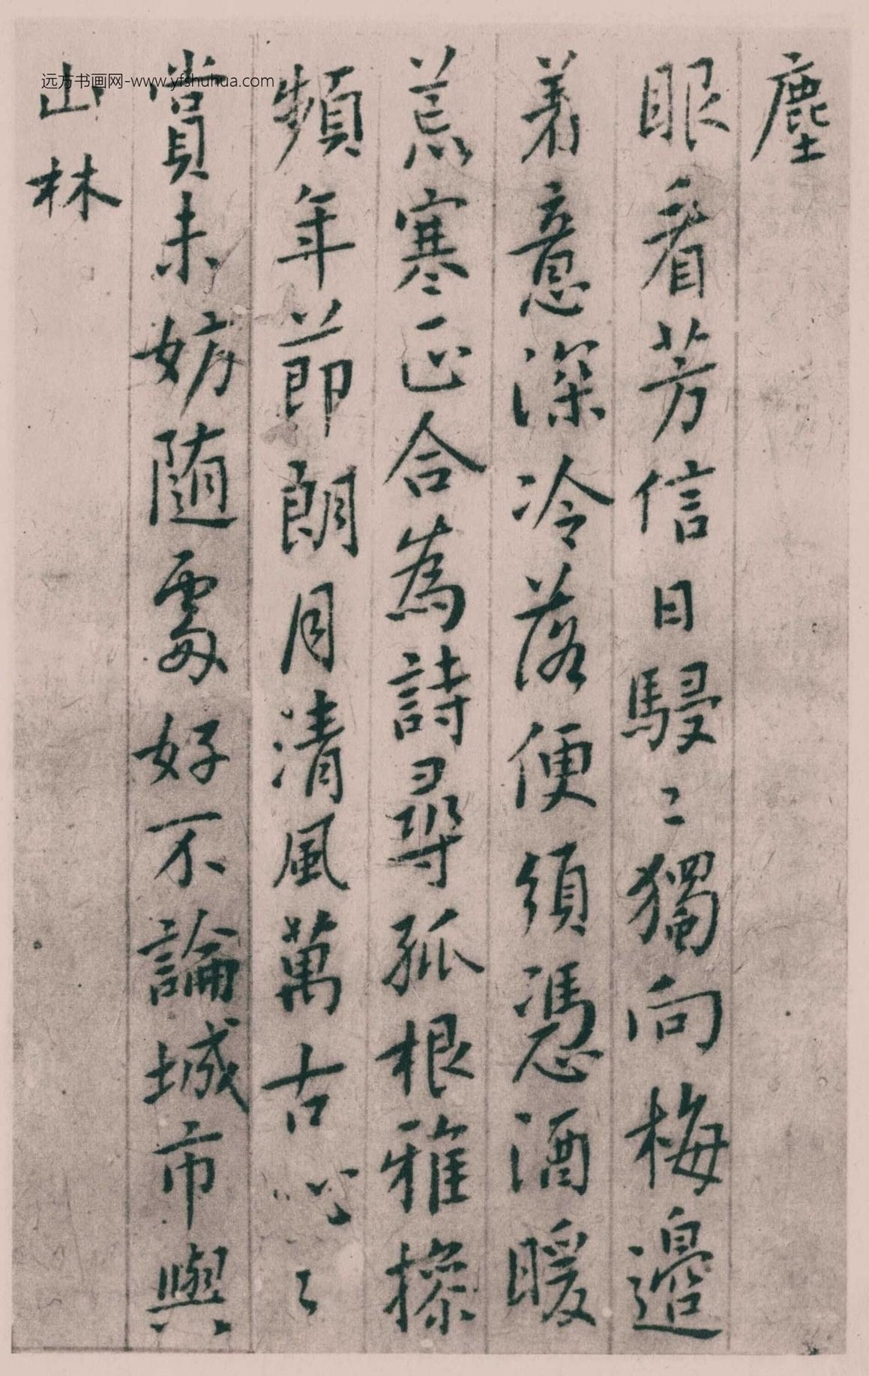 远方书画网-www.yfshuhua.com
塵
眼看芳信日駸〻獨向梅邊
着意深冷落便須憑酒暖
荒寒正合為詩尋孤根雅操
頻年節朗月清風萬古心〻
賞未妨隨處好不論城市與
山林